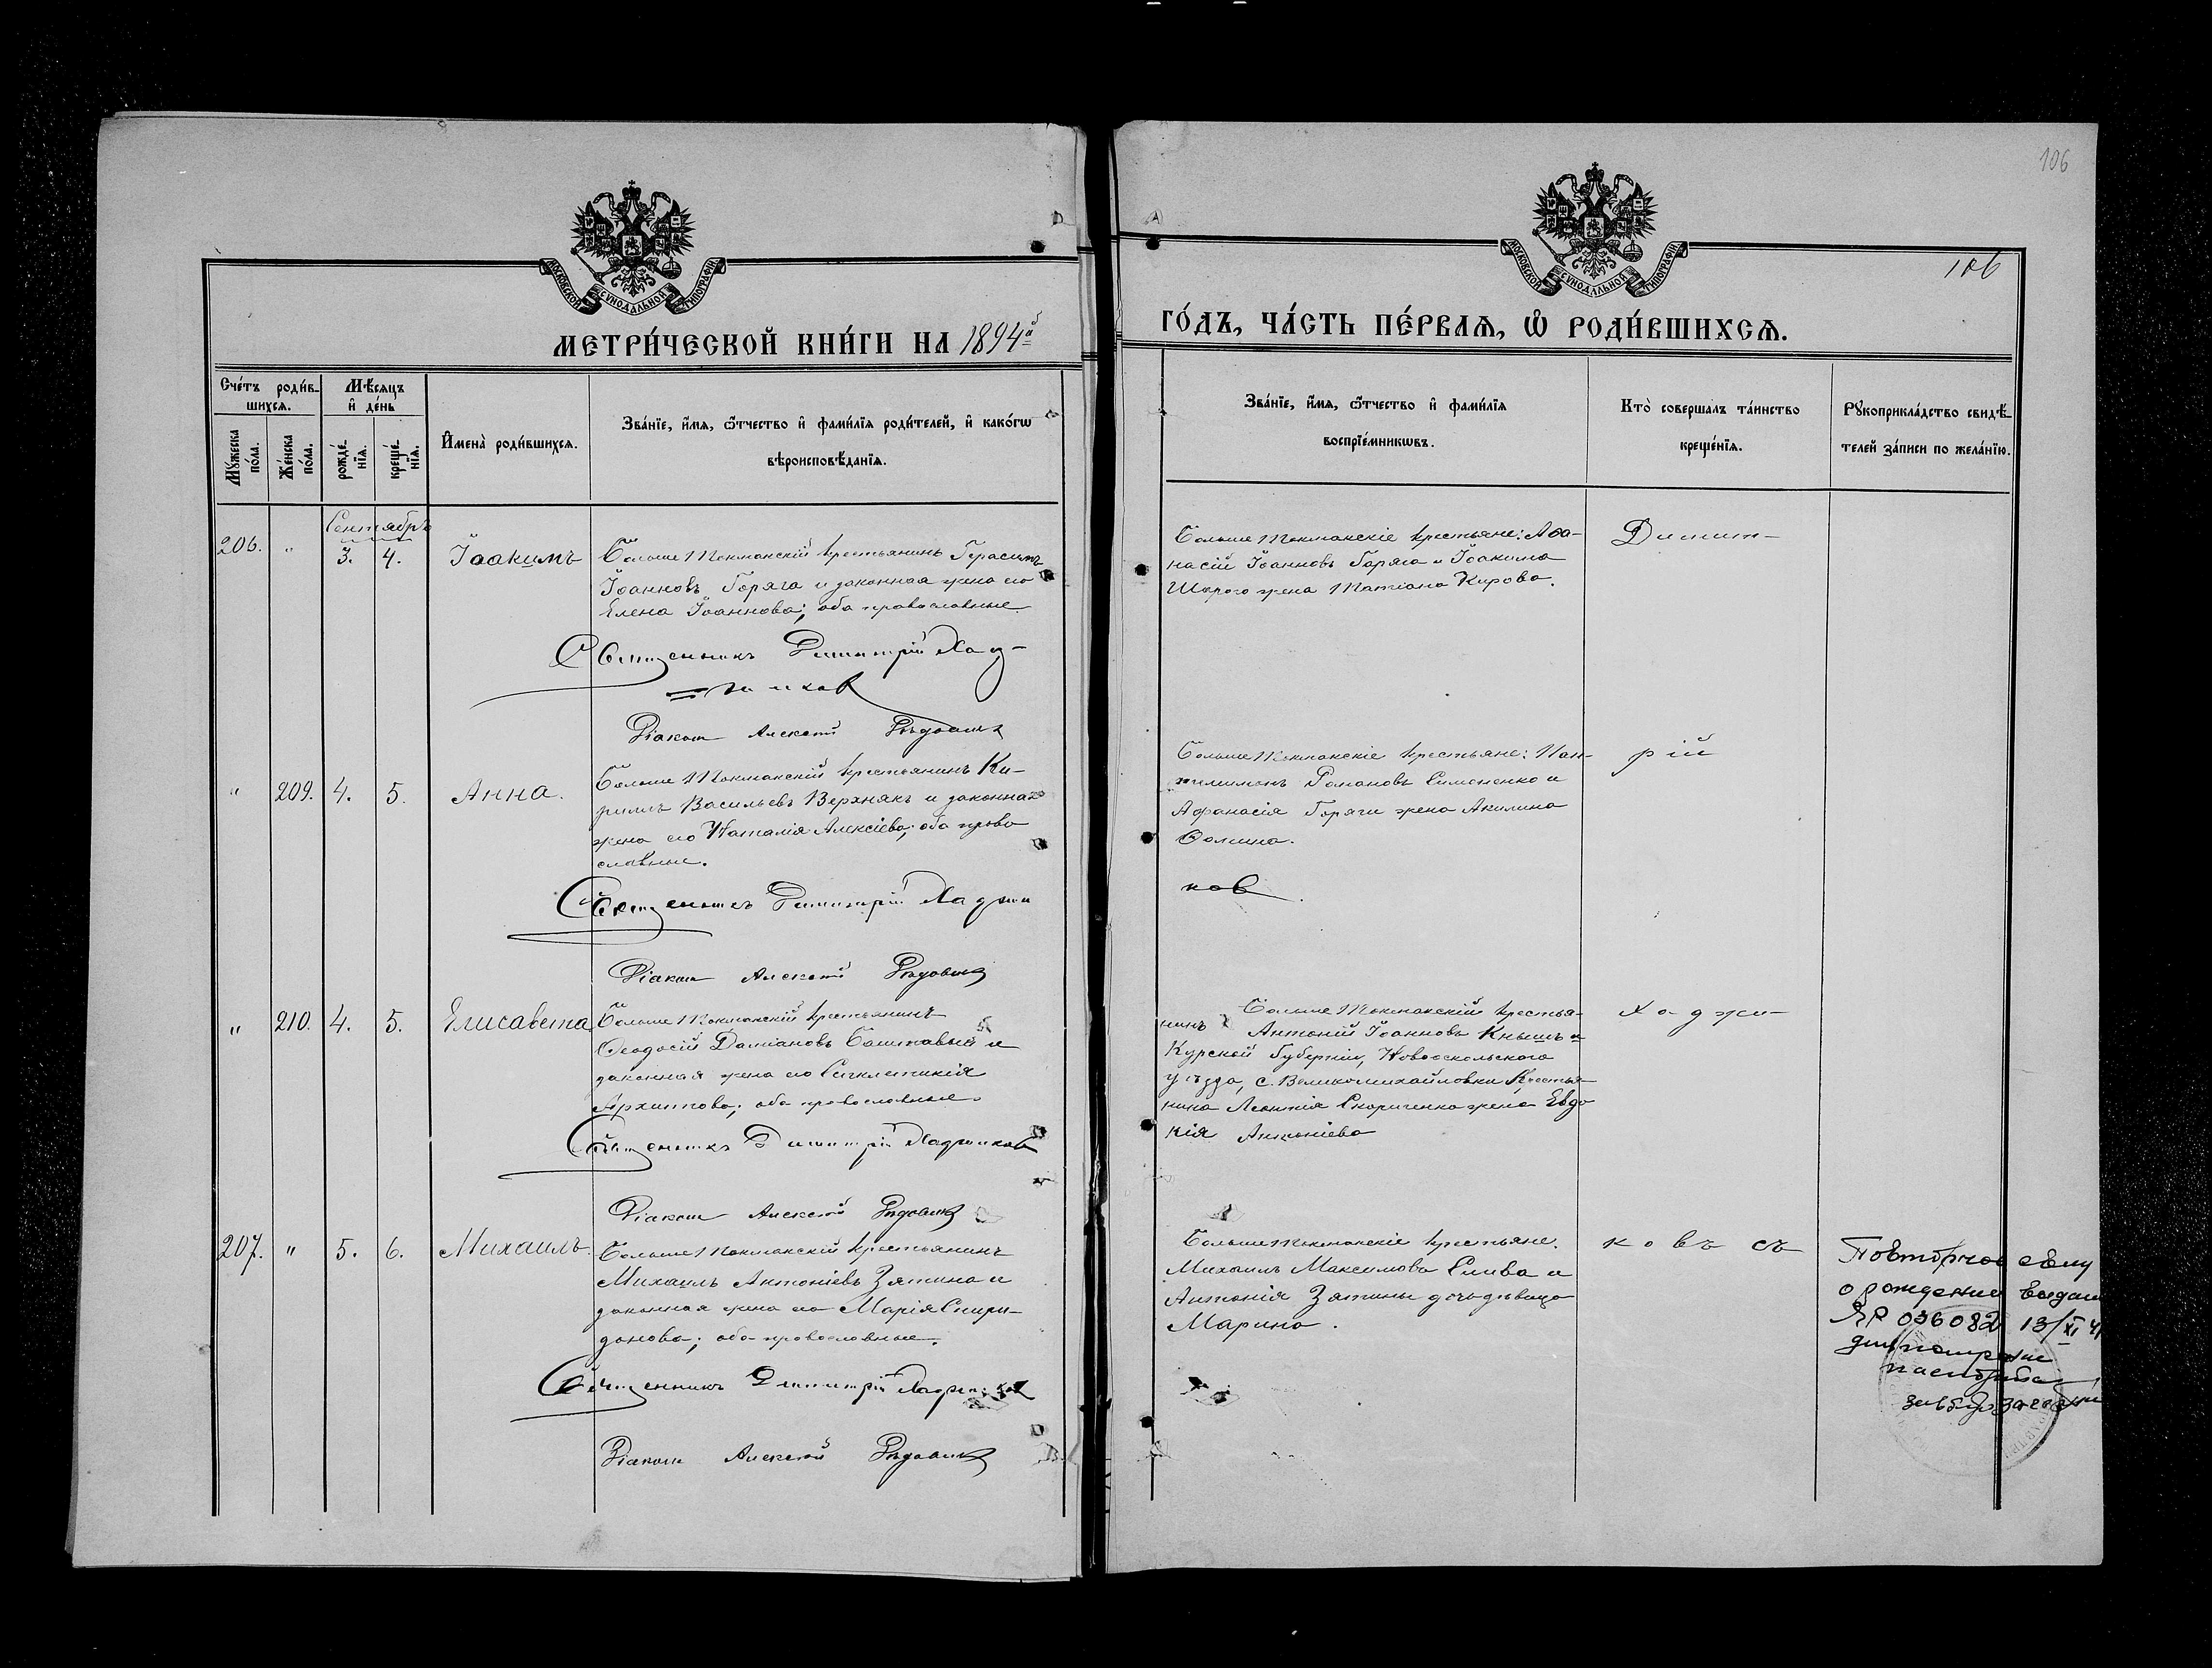 106
106
МОСКОВСКОЙ СѴНОДАЛЬНОЙ ТИПОГРАФІИ
МОСКОВСКОЙ СѴНОДАЛЬНОЙ ТИПОГРАФІИ
МЕТРИ́ЧЕСКОЙ КНИ́ГИ НА 1894й
ГО́ДЪ, ЧА́СТЬ ПЕ́РВАѦ, Ѡ҆ РОДИ́ВШИХСѦ.
Сче́тъ роди́в-
шихсѧ.
Мꙋ́жеска
по́ла.
Же́нска
по́ла.
Мѣ́сѧцъ
и҆ де́нь
рожде́-
нїѧ.
креще́-
нїѧ.
И҆мена̀ роди́вшихсѧ.
Зва́нїе, и҆́мѧ, ѻ҆́тчество и҆ фами́лїѧ роди́телей, и҆ како́гѡ
вѣроисповѣ́данїѧ.
Зва́нїе, и҆́мѧ, ѻ҆́тчество и҆ фами́лїѧ
воспрїе́мникѡвъ.
Кто̀ совершалъ та́инство
креще́нїѧ.
Рꙋкоприкла́дство свидѣ́-
телей за́писи по жела́нїю.
Сентябрь
206. " 3. 4. Іоакимъ
Больше Токмакскій крестьянинъ Герасимъ
Іоанновъ Горяга и законная жена его
Елена Іоаннова; оба православные.
Священникъ Димитрій Хад-
жиков
Діакон Алексій
Больше Токмакскіе крестьяне: Афа-
насій Іоанновъ Горяга и Іоакима
Широго жена Татіана Карова.
Димит-
" 209. 4. 5. Анна.
Больше Токмакскій крестьянинъ Ки-
риллъ Васильевъ Верхнякъ и законная
жена его Наталія Алексіева; оба право
славные.
Священникъ Димитрій Хаджи
ков
Діакон Алексій
Больше Токмакскіе крестьяне: Пан-
телимонъ Романовъ Симоненко и
Афанасія Горяги жена Акилина
Фомина.
рій
" 210. 4. 5. Елисавета
Больше Токмакскій крестьянинъ
Феодосій Даміановъ Баштавый и
законная жена его Сигклитикія
Архипова; оба православные.
Священникъ Димитрій Хаджиков
Діакон Алексій
Больше Токмакскій крестья-
нинъ Антоній Іоанновъ Кнышъ и
Курской Губерніи, Новооскольского
уѣзда, с. Великомихайловки крестья-
нина Леонтія Скориченко жена Евдо
кія Антоніева
Хаджи-
207. " 5. 6. Михаилъ.
Больше Токмакскій крестьянинъ
Михаилъ Антоніевъ Зятина и
законная жена его Марія Спири-
донова; оба православные.
Священникъ Димитрій Хаджиков
Діакон Алексій
Больше Токмакскіе крестьяне.
Михаилъ Максимовъ Слива и
Антонія Зятины дочь дѣвица
Марина.
ковъ съ
Повторное
о рождении выдано
ЯР 036082 13/XI 41
паспорта